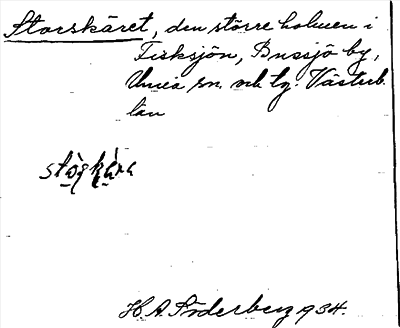 Storskäret, den större holmen i
Fisksjön, Bussjö by,
Umeå sn. och lg. Västerb.
län
H. A. Söderberg 1934.